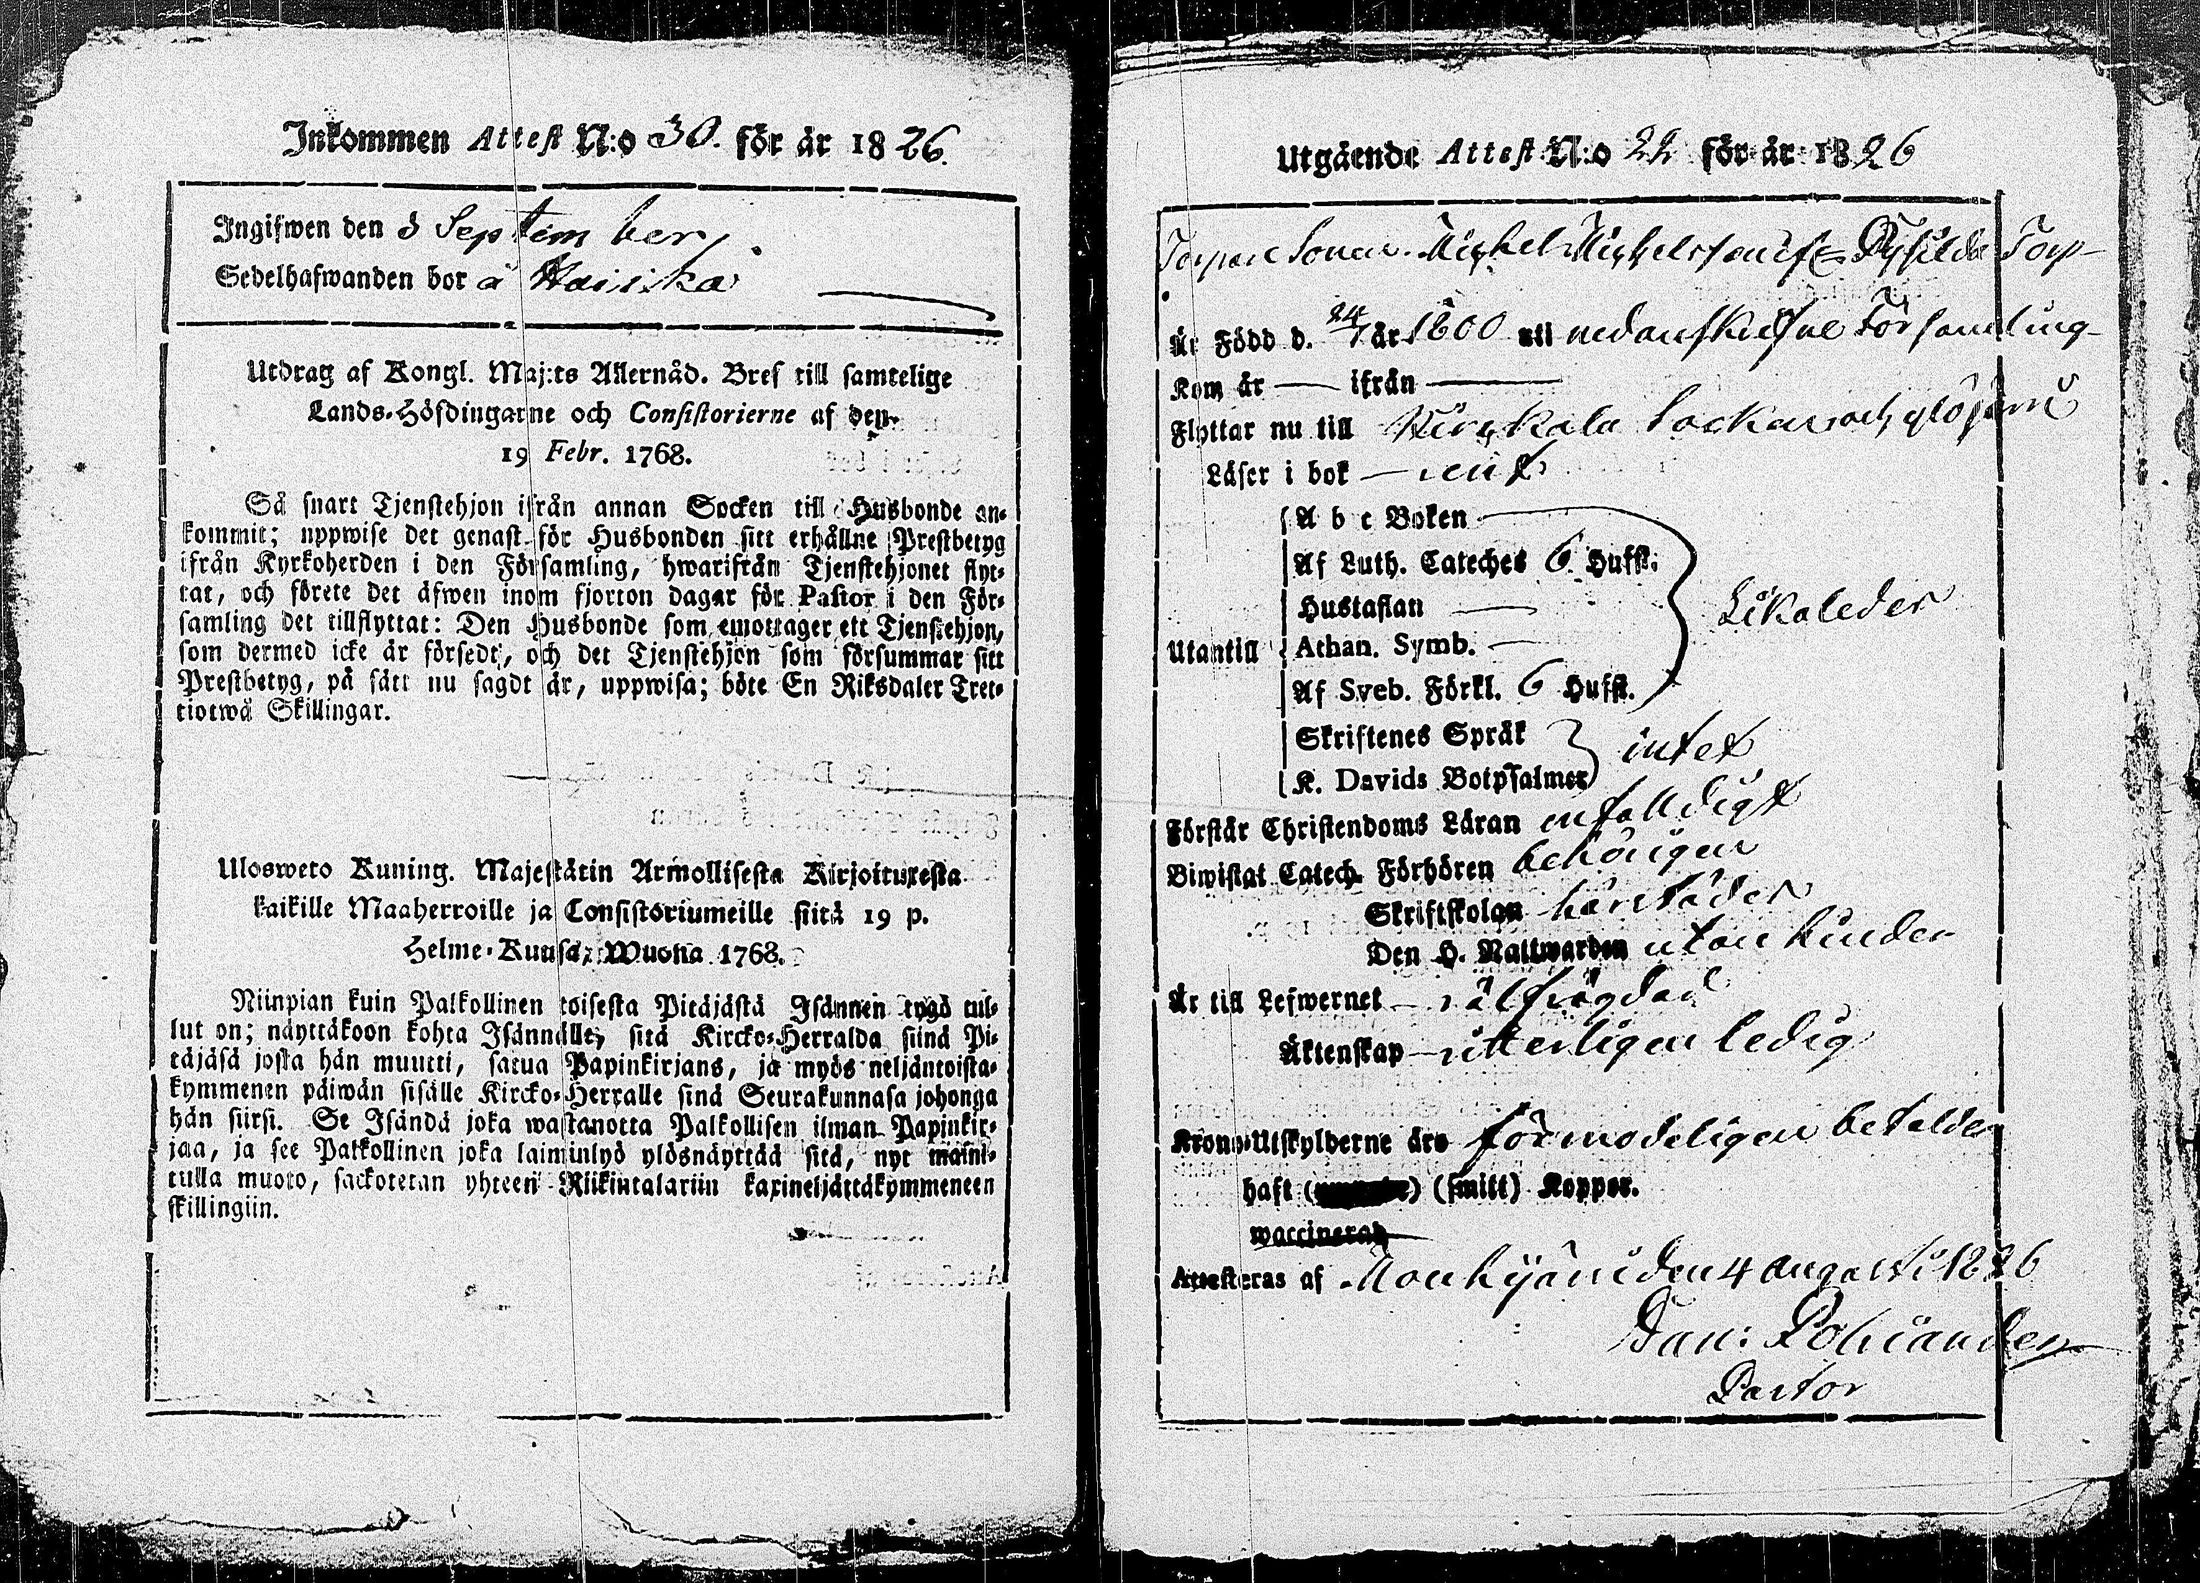 Inkommen Attest N:o 30. för år 1826.
Ingifwen den 3 September
Sedelhafwanden bor å
Utdrag af Kongl. Maj:ts Allernåd. Bref till samtelige
Lands-Höfdingarne och Consistorierne af den
19 Febr. 1768.
Så snart Tjenstehjon ifrån annan Socken till Husbonde an-
kommit; uppwise det genast för Husbonden sitt erhållne Prestbetyg
ifrån Kyrkoherden i den Församling, hwarifrån Tjenstehjonet flyt-
tat, och förete det äfwen inom fjorton dagar för Pastor i den För-
samling det tillflyttat: Den Husbonde som emottager ett Tjenstehjon,
som dermed icke är försedt, och det Tjenstehjon som försummar sitt
Prestbetyg, på sätt nu sagdt är, uppwisa; böte En Riksdaler Tret-
tiotwå Skillingar.
Ulosweto Kuning. Majestätin Armollisesta Kirjoituxesta
kaikille Maaherroille ja Consistoriumeille siitä 19 p.
Helme-Kuusa Wuona 1768.
Niinpian kuin Palkollinen toisesta Pitäjästä Isännen tygö tul-
lut on; näyttäköön kohta Isännälle, sitä Kircko-Herralda siinä Pi-
täjäsä josta hän muutti, satua Papinkirjans, ja myös neljäntoista-
kymmenen päiwän sisälle Kircko-Herralle sinä Seurakunnasa johonga
hän siirsi. Se Isändä joka wastanotta Palkollisen ilman Papinkir-
jaa, ja see Palkollinen joka laiminlyö ylösnäyttää sitä, nyt maini-
tulla muoto, sackotetan yhteen Riikintalariin kaxineljättäkymmeneen
skillingiin.
Utgående Attest N:o 22 för år 1826
Torpare Sonen Michel Michelsson ifr. Torp
Är Född d. 24/7 år 1800 uti nedanskrifne Församling
Kom år — ifrån —
Flyttar nu till Virkala Socken och
Läser i bok — rent
Utantill
A b c Boken —
Af Luth. Cateches 6 Hufst.
Hustaflan —
Athan. Symb. —
Af Sveb. Förkl. 6 Hufst.
Likaledes
Skriftenes Språk
K. Davids Botpsalmer
intet
Förstår Christendoms Läran enfalldigt
Biwistat Catech. Förhören behörigen
Skriftskolan härstädes
Den H. Nattwarden utan hinder
Är till Lefwernet — välfrägdad
Äktenskap — ytterligen ledig
Krono-Utskylderne äro förmodeligen betalde
haft (smitt) Koppor.
waccinerad
Attesteras af Mouhijärvi den 4 Augusti 1826
Dan: Polviander
Pastor